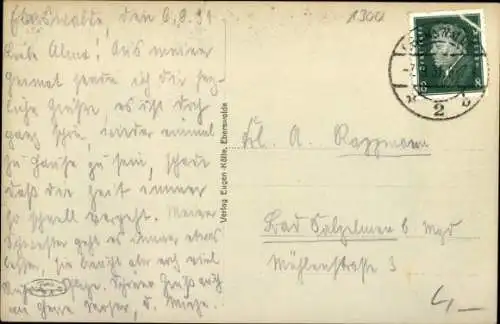 Eberswalde, den 6.9.31
Liebe Alma! Aus meiner
Heimat sende ich dir herz-
liche Grüße, es ist doch
ganz schön, wieder einmal
zu Hause zu sein, schade
daß die Zeit immer
so schnell vergeht. Meiner
Schwester geht es immer etwas
besser, sie braucht aber noch viel
Ruhe Pflege. Schöne Grüße auch
an
Verlag Eugen Kölle, Eberswalde
1300
2
Frl. A. Rappmann
Bad Salzelmen b Mgd
Mühlenstraße 3
4,-